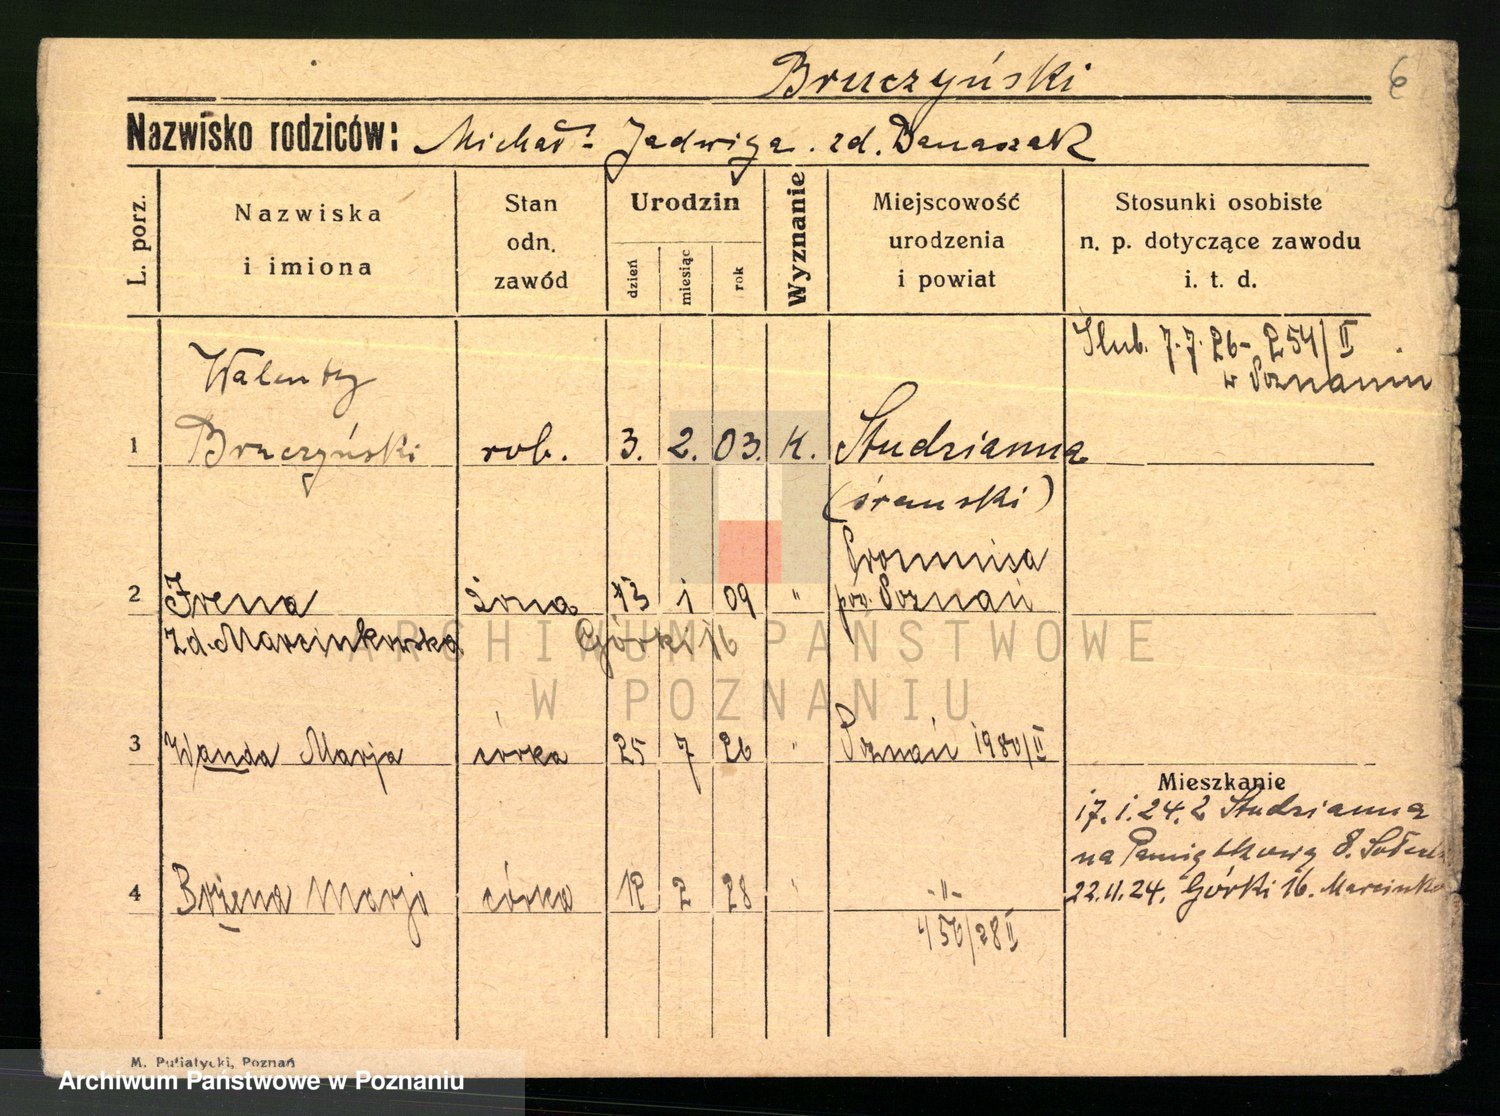 Bruczyński
6
Nazwisko rodziców: Michał - Jadwiga . zd. Danaszak
L. porz.
Nazwiska
i imiona
Stan
odn.
zawód
Urodzin
dzień
miesiąc
rok
Wyznanie
Miejscowość
urodzenia
i powiat
Stosunki osobiste
n. p. dotyczące zawodu
i. t. d.
Ślub. 7.7.26 - 254/II
w Poznaniu
Walenty
1 Bruczyński rob. 3. 2. 03. K. Studzianna
(śremski)
2 Irena żona 13 1 09 " pow. Poznań
zd. Marcinkowska Górki 16
3 Wanda Marja córka 25 7 26 " Poznań 1980/II
Mieszkanie
17.1.24. z Studzianna
na
22.11.24. Górki 16.
4 Bożena Marja córka 12 2 28 " -"-
450/28 II
M. Putiatycki, Poznań
ARCHIWUM PAŃSTWOWE
W POZNANIU
Archiwum Państwowe w Poznaniu